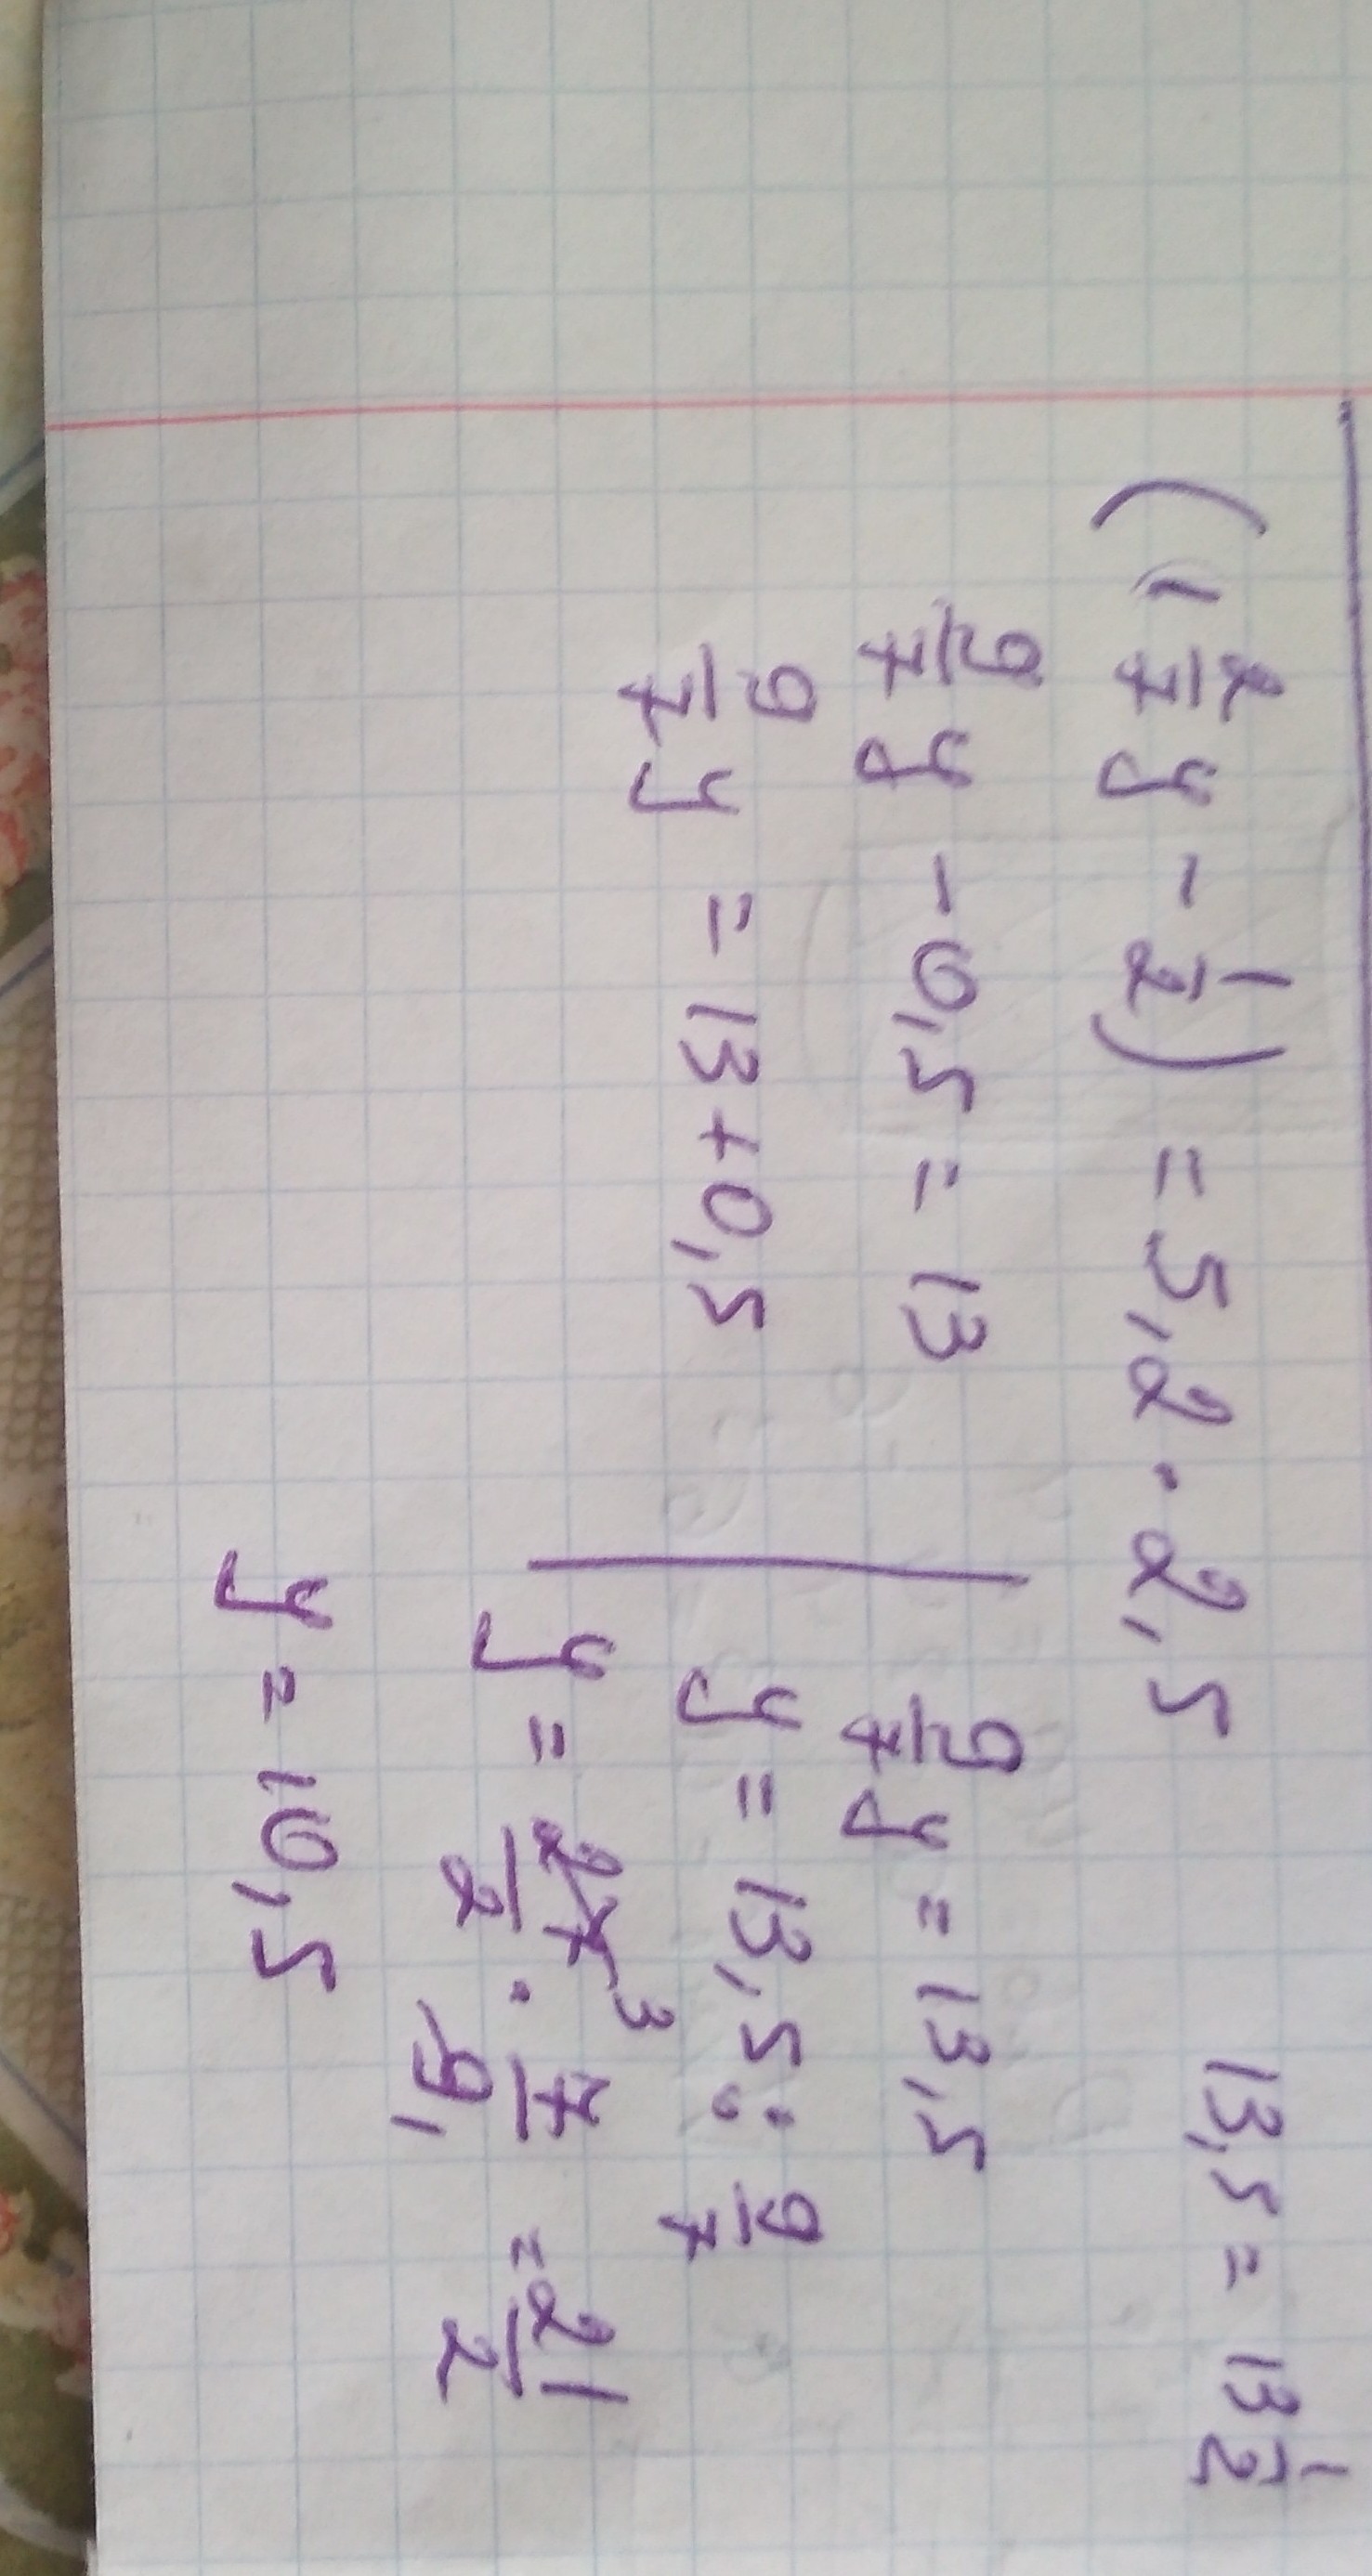 (1 2/7 y - 1/2) = 5,2 · 2,5
13,5 = 13 1/2
9/7 y - 0,5 = 13
9/7 y = 13 + 0,5
9/7 y = 13,5
y = 13,5 : 9/7
y = 27 3/2 · 7/9 1 = 21/2
y = 10,5